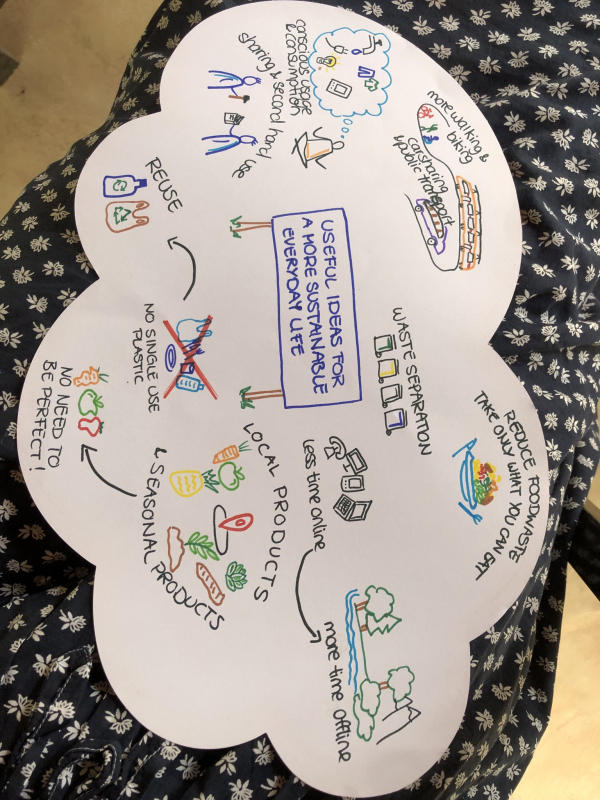 USEFUL IDEAS FOR
A MORE SUSTAINABLE
EVERYDAY LIFE
more walking &
biking
carsharing
&public transport
REDUCE FOODWASTE
TAKE ONLY WHAT YOU CAN EAT
WASTE SEPARATION
conscious usage
& consumation
sharing & second hand use
less time online
more time offline
LOCAL PRODUCTS
& SEASONAL PRODUCTS
NO NEED TO
BE PERFECT!
NO SINGLE USE
PLASTIC
REUSE